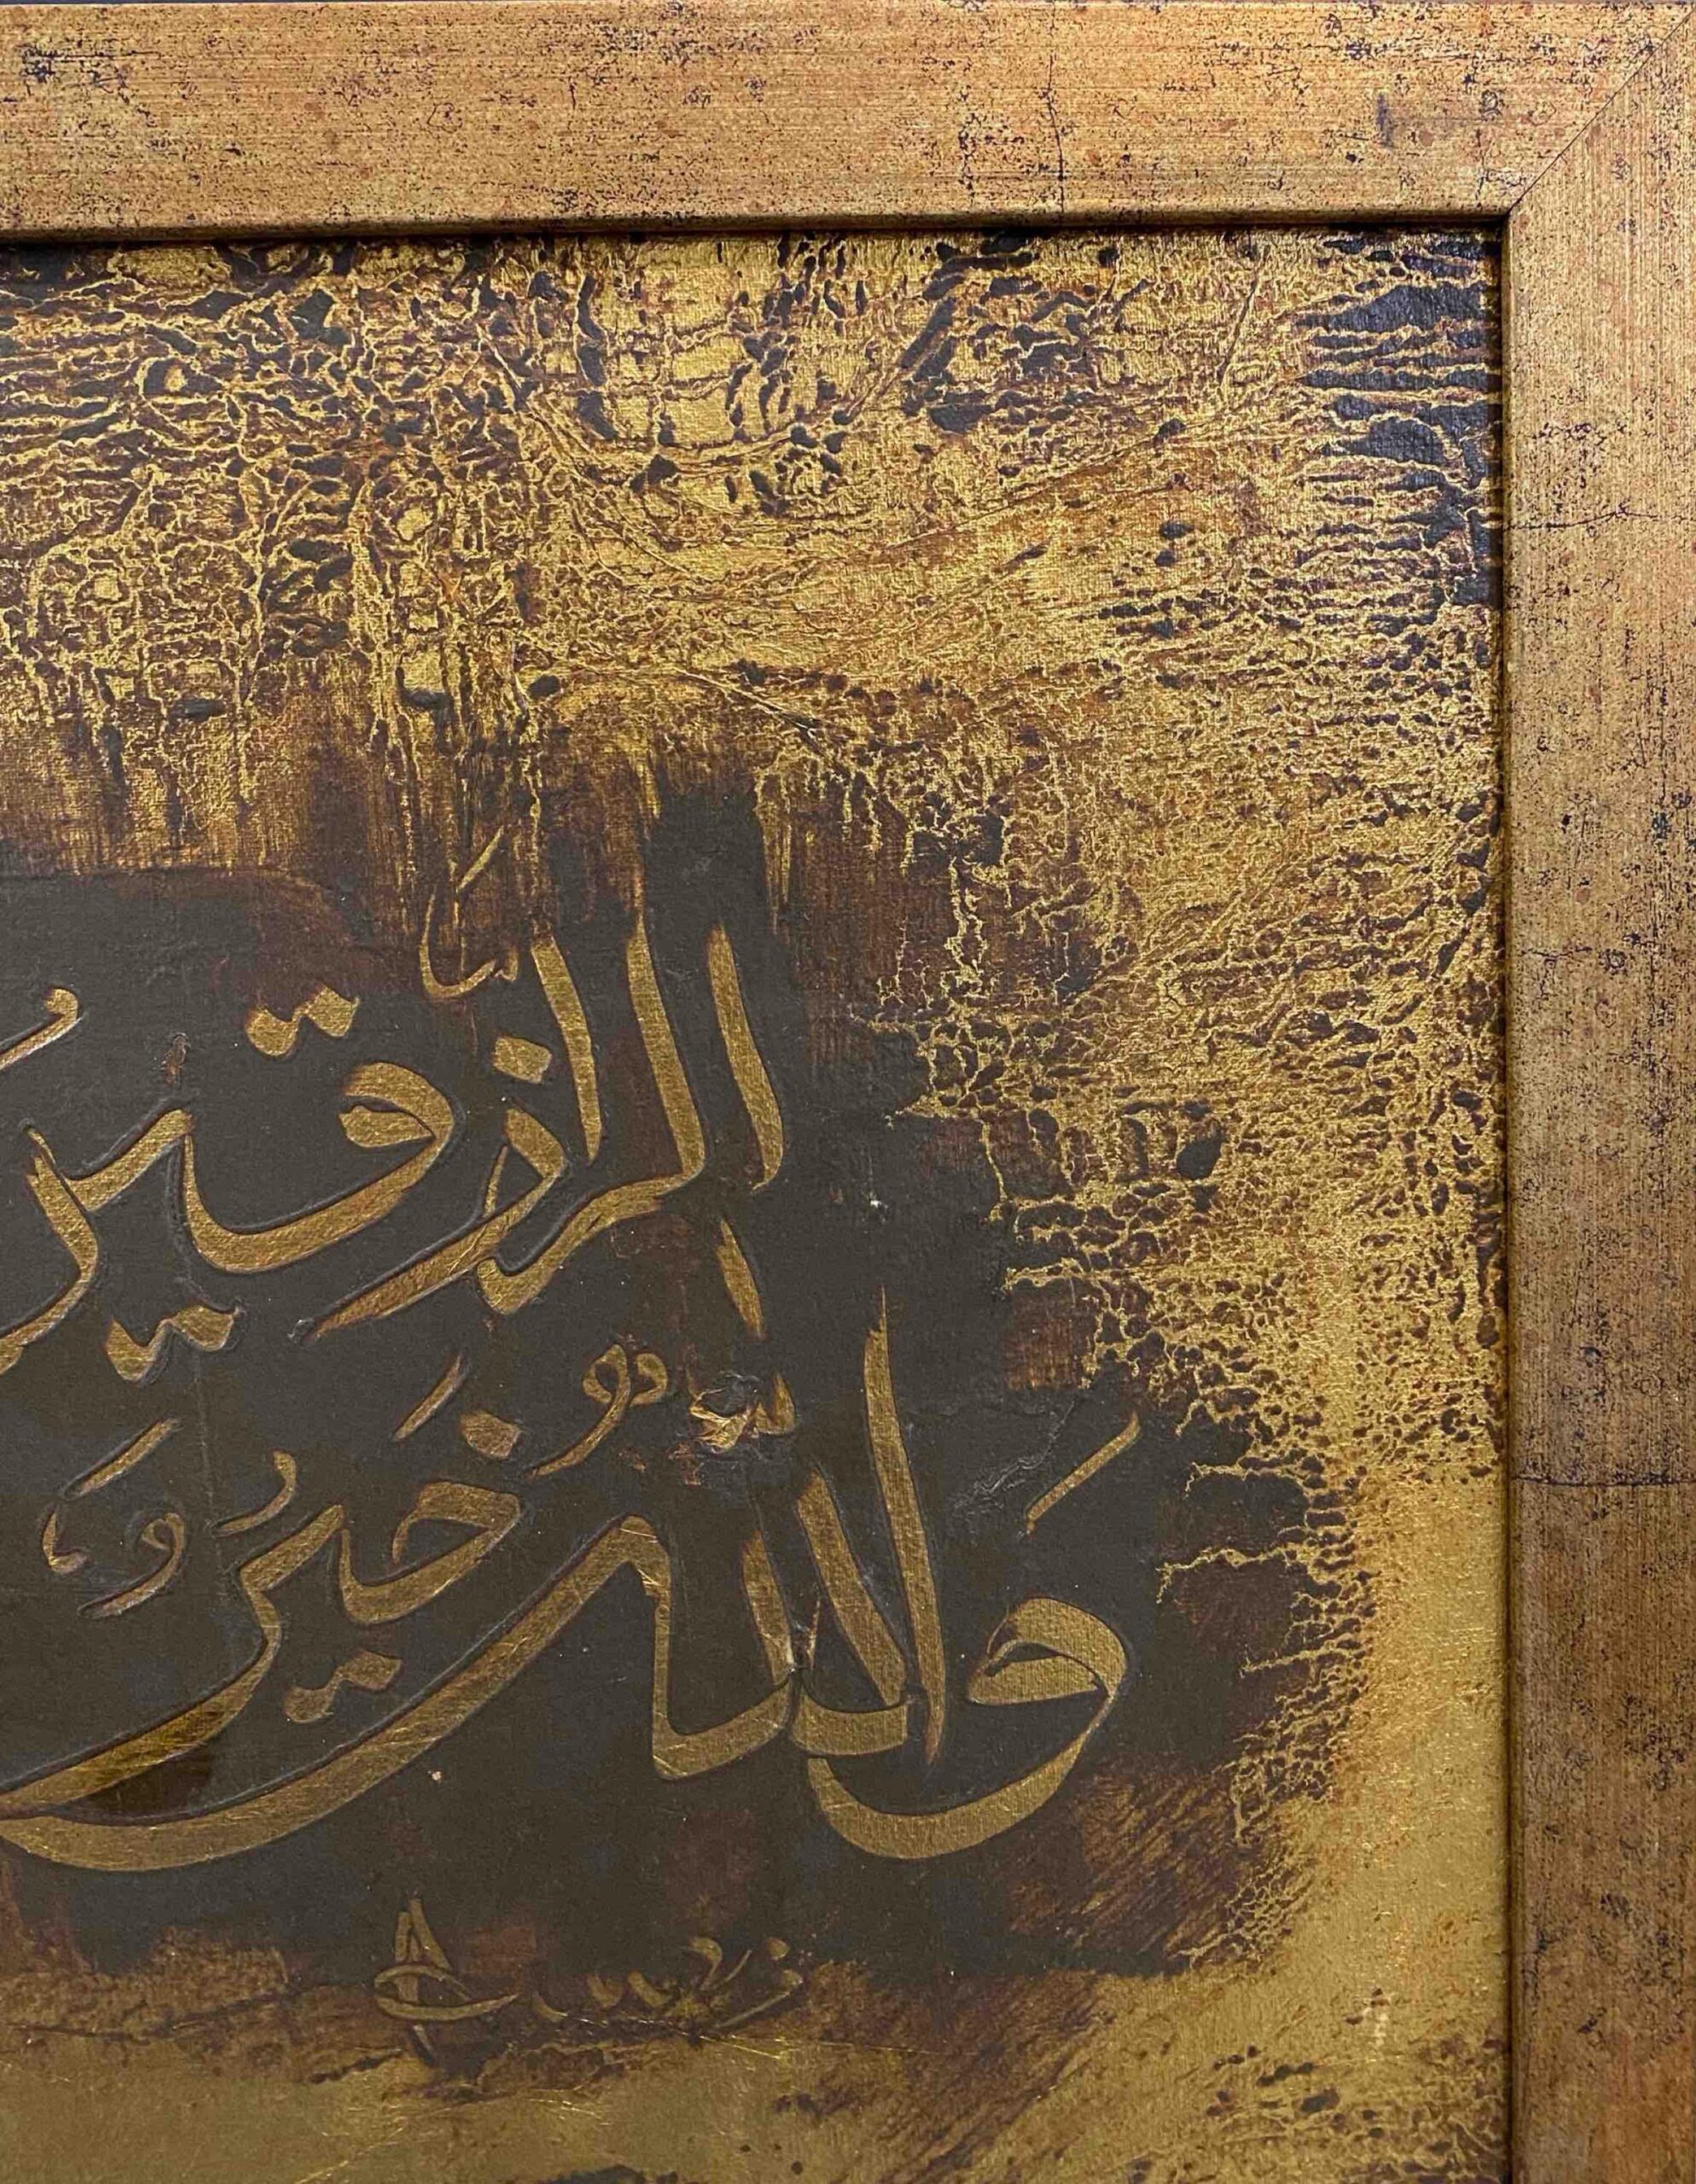 الرازقين
والله خير